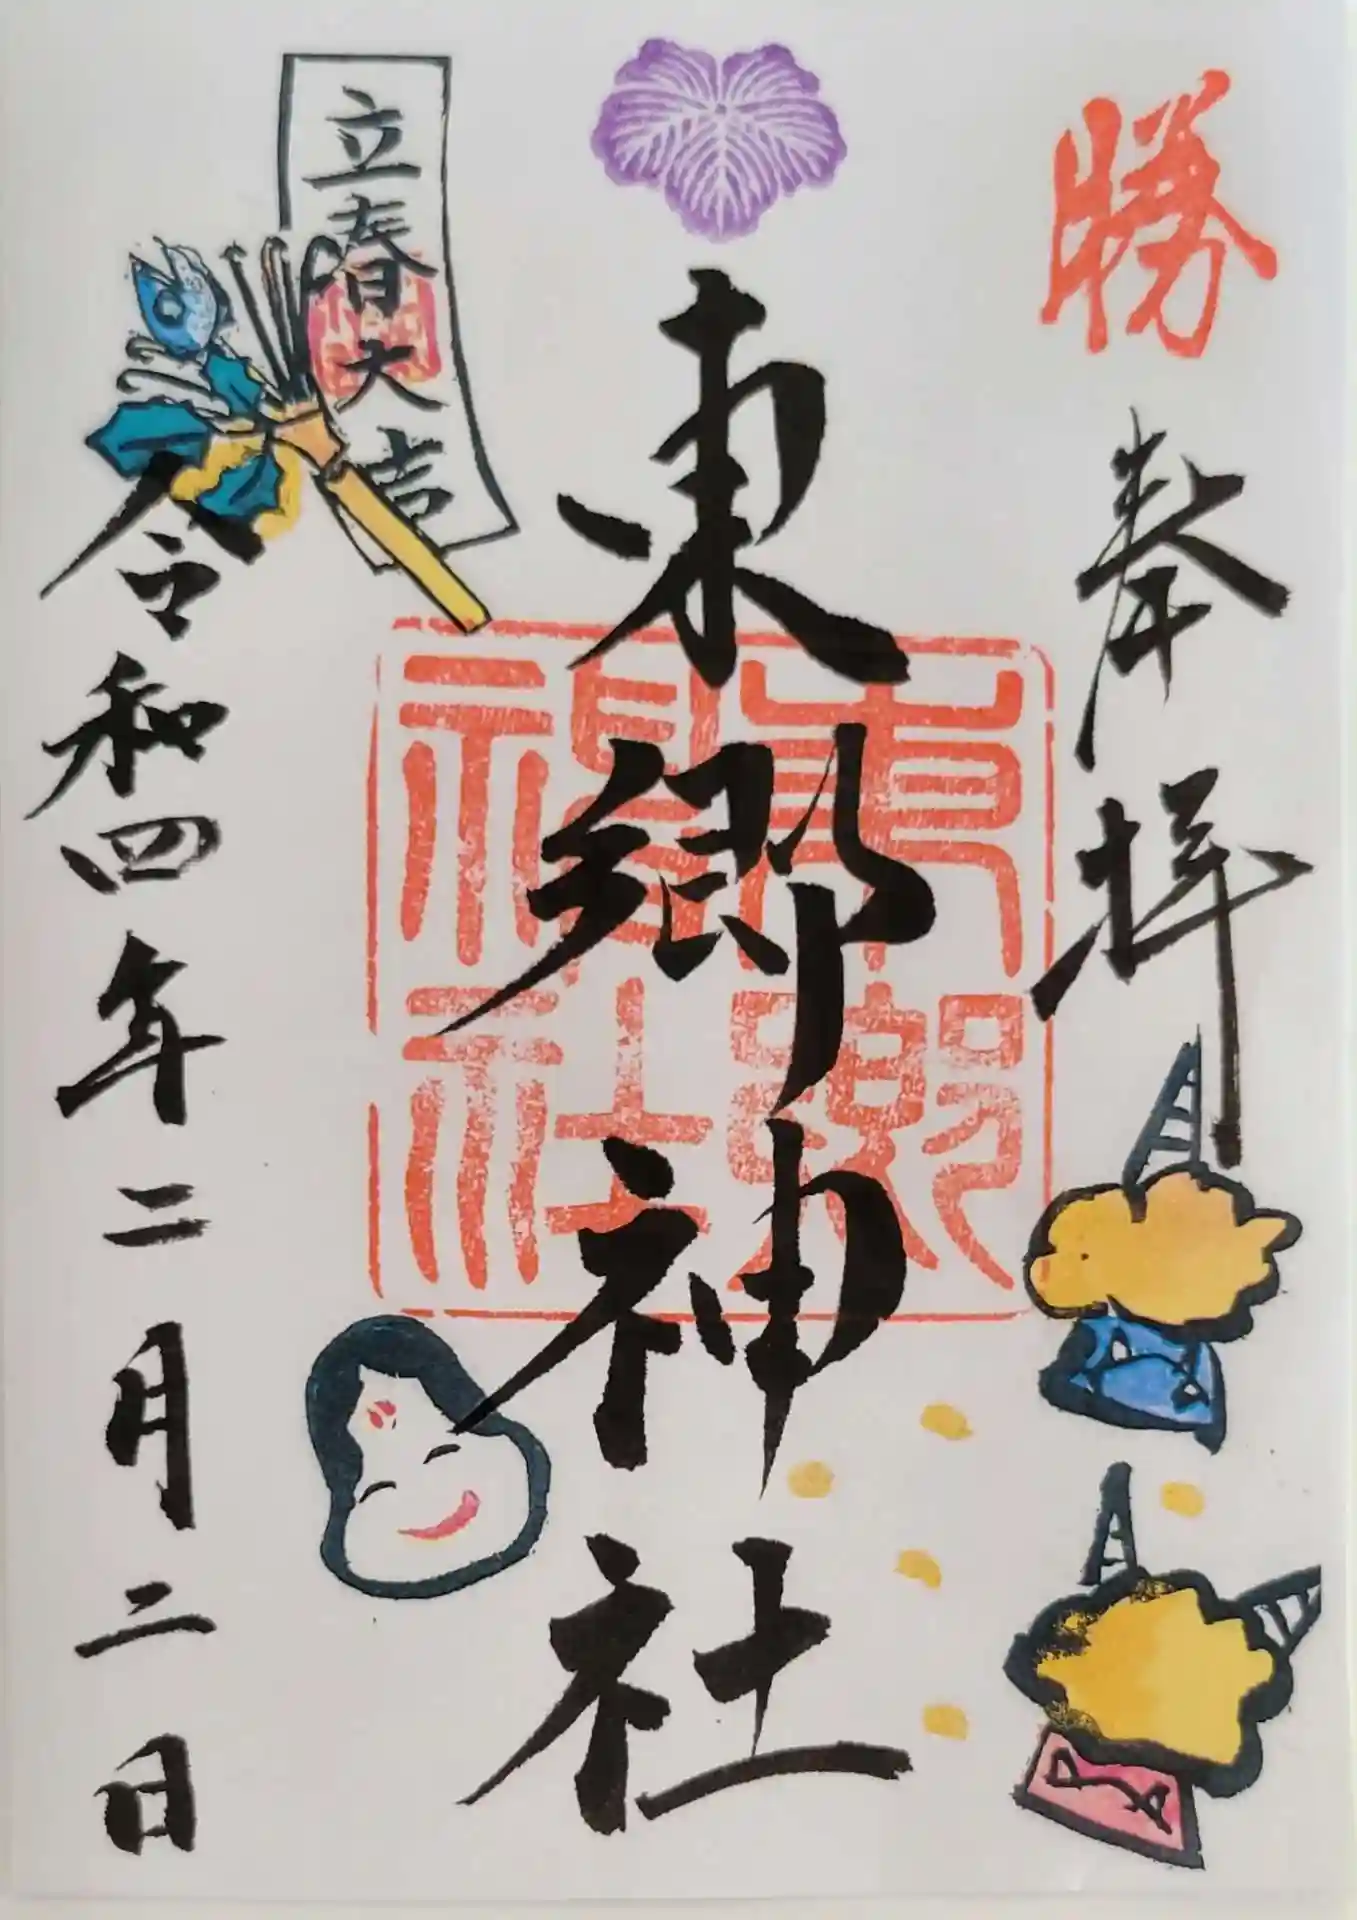 勝
奉拝
東郷神社
東郷神社
立春大吉
令和四年二月二日